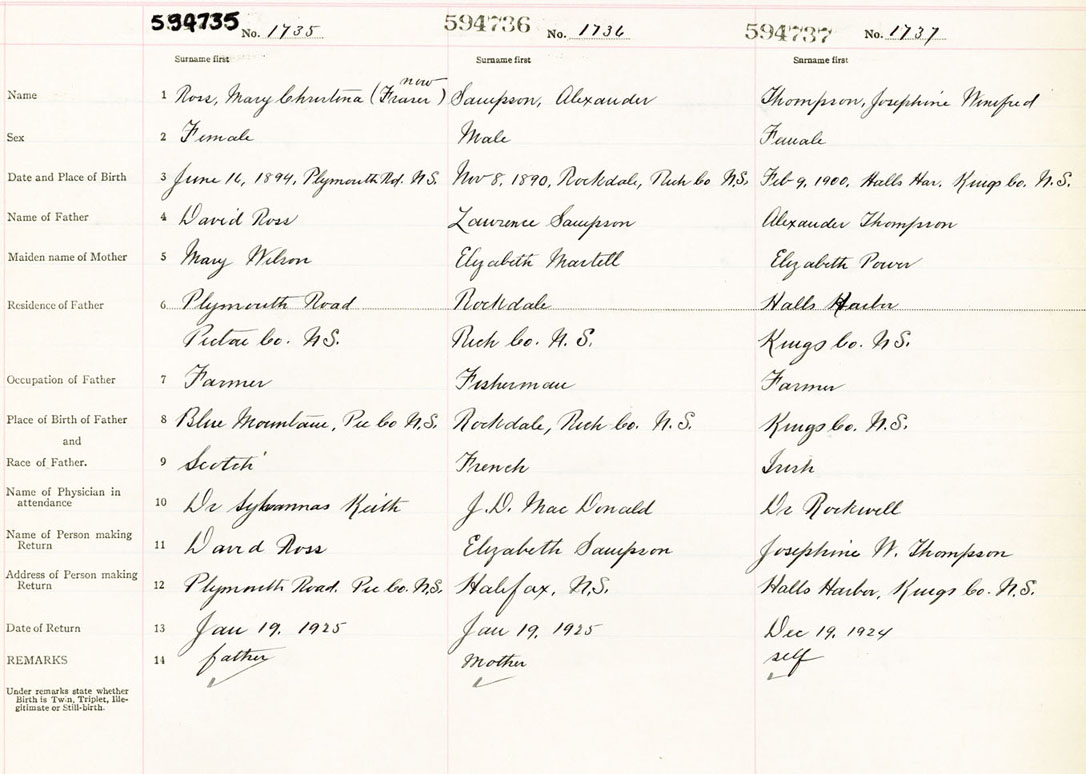 594735 No. 1735 594736 No. 1736 594737 No. 1737
Surname first Surname first Surname first
now
Name 1 Ross, Mary Christina (Fraser) Sampson, Alexander Thompson, Josephine Winifred
Sex 2 Female Male Female
Date and Place of Birth 3 June 16, 1894, Plymouth Rd. N.S. Nov 8, 1890, Rockdale, Rich Co N.S. Feb 9, 1900, Halls Har. Kings Co. N.S.
Name of Father 4 David Ross Lawrence Sampson Alexander Thompson
Maiden name of Mother 5 Mary Wilson Elizabeth Martell Elizabeth Power
Residence of Father 6 Plymouth Road Rockdale Halls Harbor
Pictou Co. N.S. Rich Co. N.S. Kings Co. N.S.
Occupation of Father 7 Farmer Fisherman Farmer
Place of Birth of Father 8 Blue Mountain, Pic Co N.S. Rockdale, Rich Co. N.S. Kings Co. N.S.
and
Race of Father. 9 Scotch French Irish
Name of Physician in
attendance 10 Dr Sylvannas Keith J.D. MacDonald Dr Rockwell
Name of Person making
Return 11 David Ross Elizabeth Sampson Josephine W. Thompson
Address of Person making
Return 12 Plymouth Road. Pic Co. N.S. Halifax, N.S. Halls Harbor, Kings Co. N.S.
Date of Return 13 Jan 19, 1925 Jan 19, 1925 Dec 19, 1924
REMARKS 14 father Mother self
Under remarks state whether
Birth is Twin, Triplet, Ille-
gitimate or Still-birth.